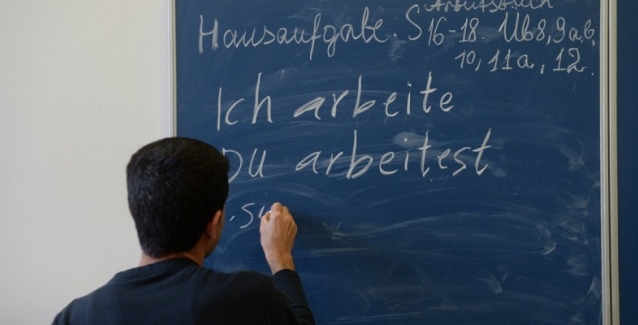 Arbeitsbuch
Hausaufgabe. S 16-18. Üb 8, 9 a, b,
10, 11a, 12.
Ich arbeite
Du arbeitest